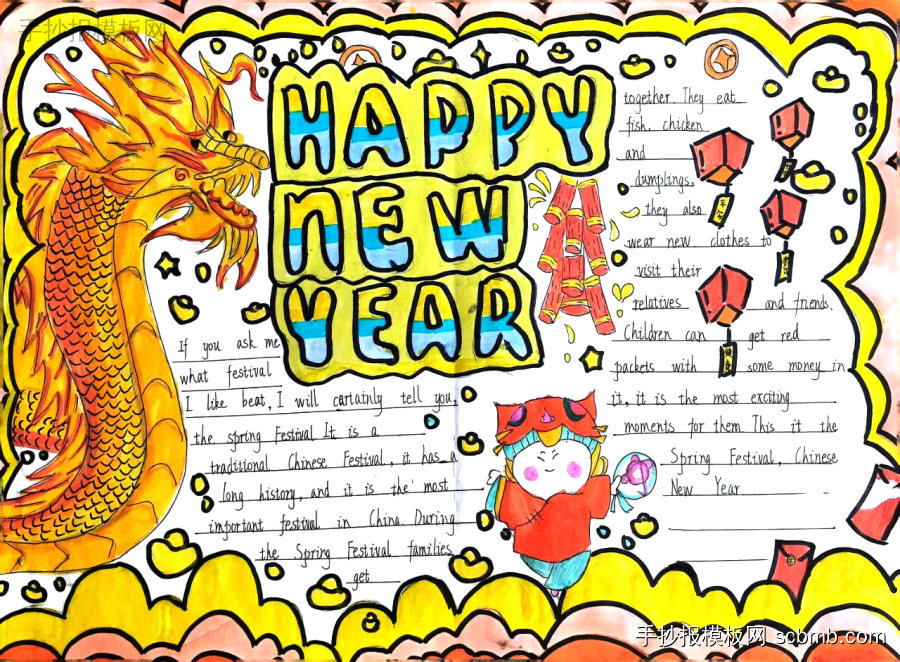 手抄报模板网
HAPPY
NEW
YEAR
If you ask me
what festival
I like beat, I will cartainly tell you,
the spring Festival It is a
traditional Chinese Festival, it has a
long history, and it is the most
important festival in China During
the Spring Festival families
get
together They eat
fish, chicken
and
dumplings,
they also
wear new clothes to
visit their
relatives and friends.
Children can get red
packets with some money in
it, it is the most exciting
moments for them. This it the
Spring Festival, Chinese
New Year
手抄报模板网 scbmb.com